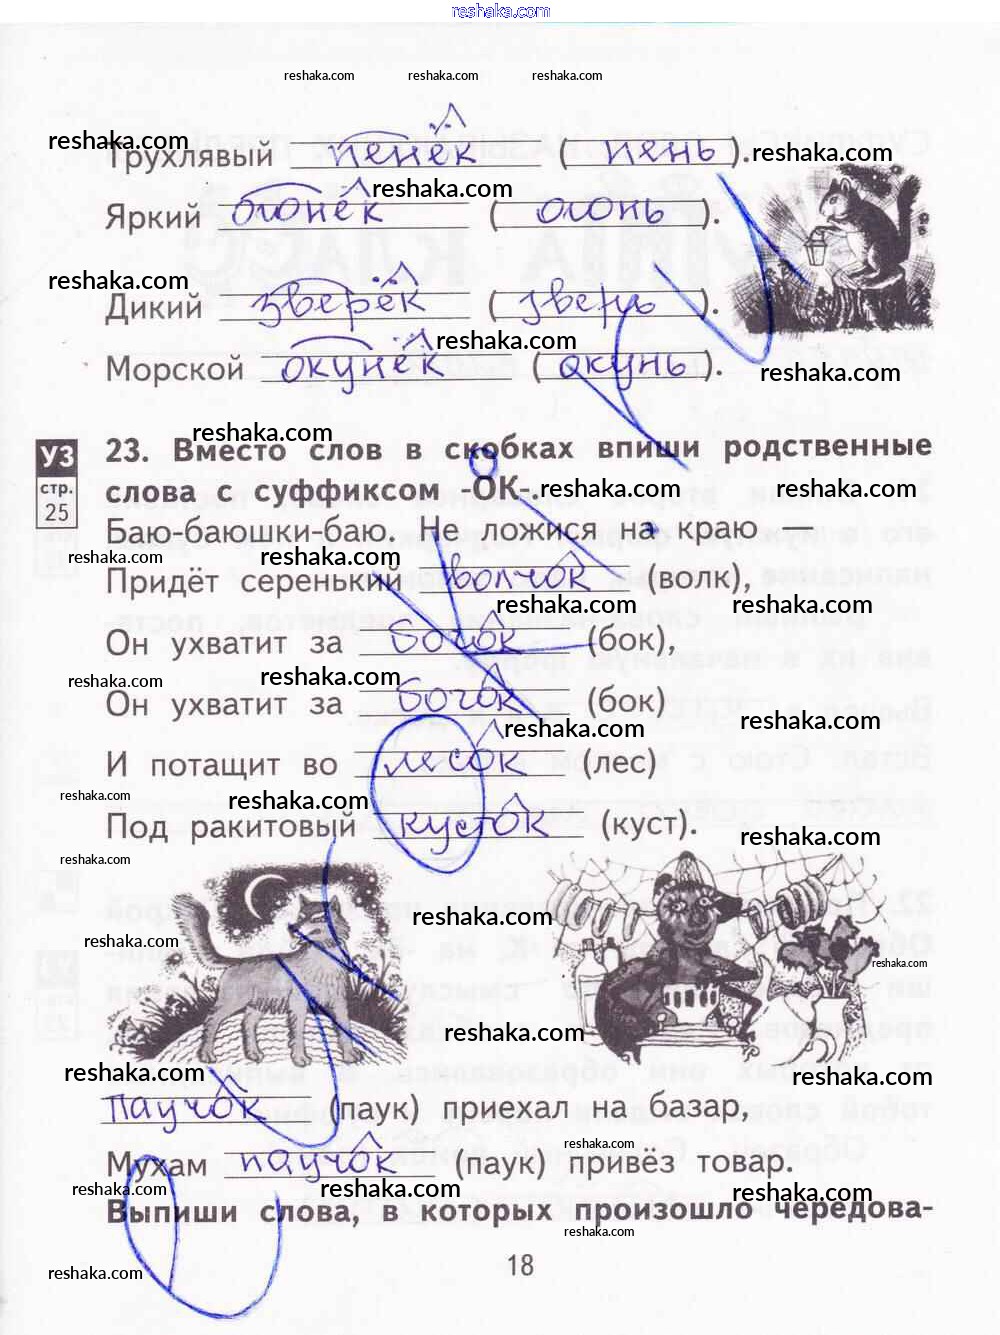 reshaka.com
reshaka.com reshaka.com reshaka.com
reshaka.com
Трухлявый пенёк (пень).
reshaka.com
reshaka.com
Яркий огонёк (огонь).
reshaka.com
Дикий зверёк (зверь).
reshaka.com
Морской окунёк (окунь).
reshaka.com
reshaka.com
УЗ
стр.
25
23. Вместо слов в скобках впиши родственные
слова с суффиксом -ОК-.
reshaka.com reshaka.com
Баю-баюшки-баю. Не ложися на краю —
reshaka.com reshaka.com
Придёт серенький волчок (волк),
reshaka.com reshaka.com
Он ухватит за бочок (бок),
reshaka.com reshaka.com
Он ухватит за бочок (бок)
reshaka.com reshaka.com
И потащит во лесок (лес)
reshaka.com reshaka.com
Под ракитовый кусток (куст).
reshaka.com
reshaka.com
reshaka.com
reshaka.com
reshaka.com
reshaka.com
reshaka.com reshaka.com
паучок (паук) приехал на базар,
reshaka.com
Мухам паучок (паук) привёз товар.
reshaka.com reshaka.com reshaka.com
Выпиши слова, в которых произошло чередова-
reshaka.com
18
reshaka.com